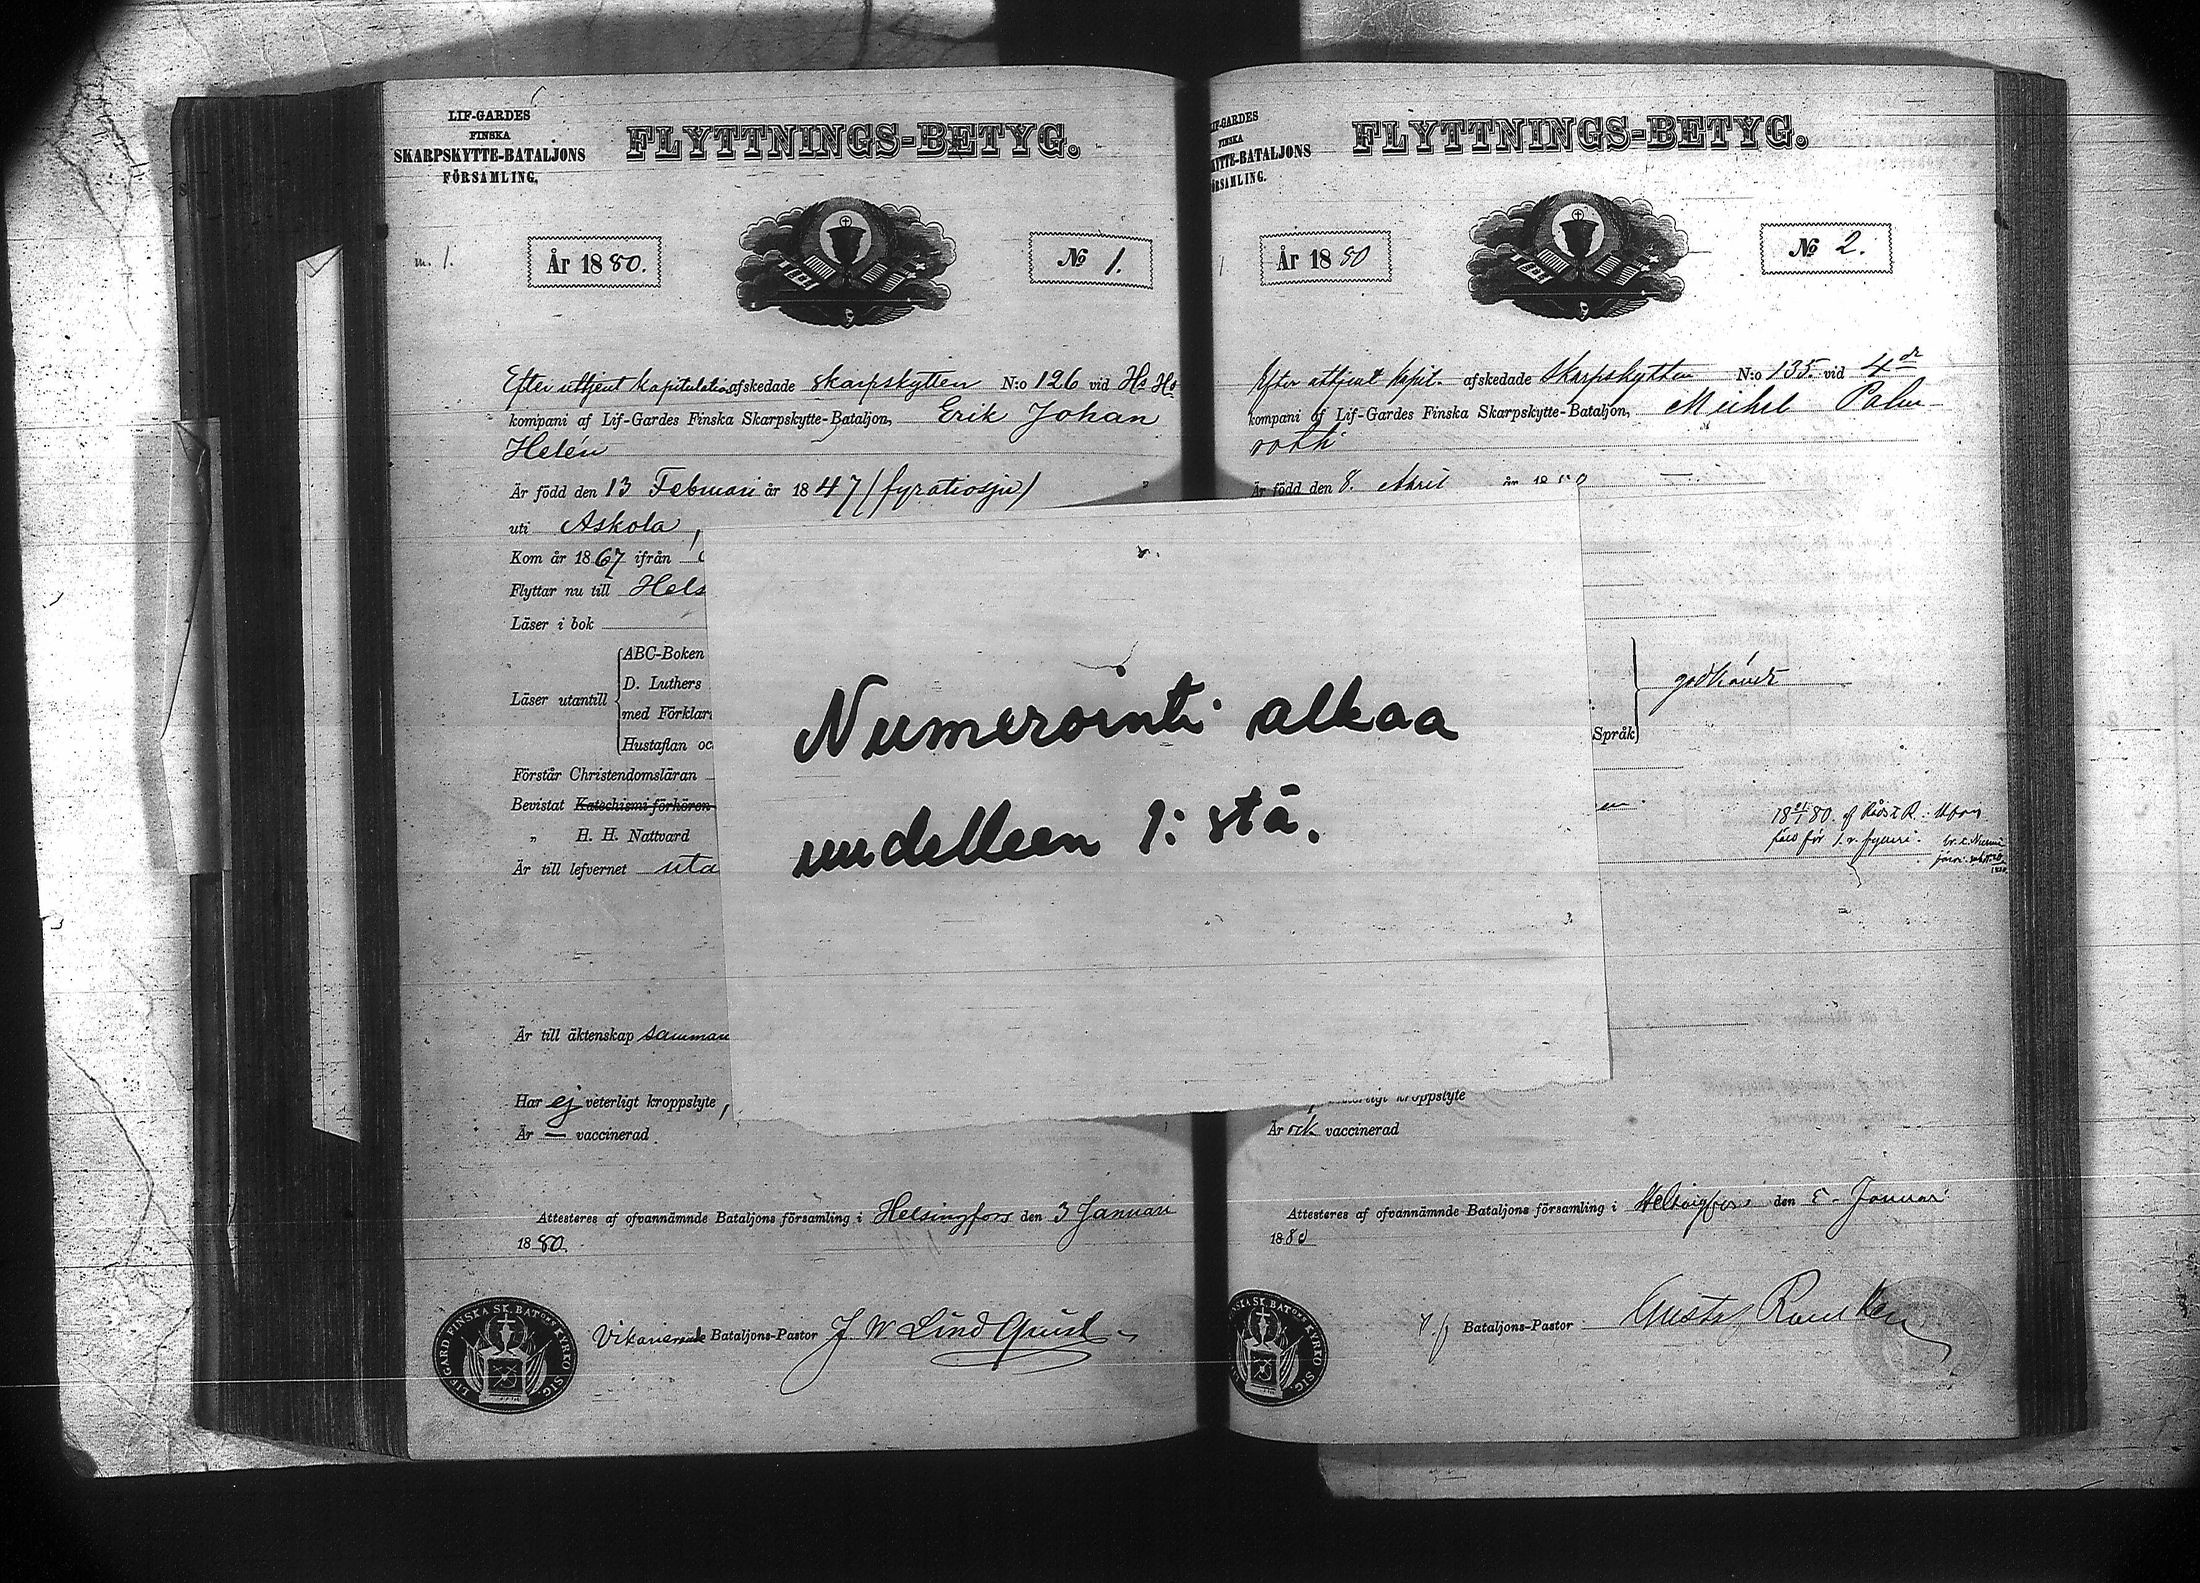 LIF-GARDES
FINSKA
SKARPSKYTTE-BATALJONS
FÖRSAMLING.
FLYTTNINGS-BETYG.
År 1880.
No 1.
Efter uttjent kapitulation afskedade skarpskytten N:o 126 vid Hs Hs
kompani af Lif-Gardes Finska Skarpskytte-Bataljon, Erik Johan
Helén
Är född den 13 Februari år 1847 (fyratiosju)
uti Askola,
Kom år 1867 ifrån
Flyttar nu till Hels
Läser i bok
Läser utantill
ABC-Boken
D. Luthers
med Förklar
Hustaflan oc
Förstår Christendomsläran
Bevistat Katechismi förhören
„ H. H. Nattvard
Är till lefvernet uta
Är till äktenskap samman
Har ej veterligt kroppslyte,
Är — vaccinerad
Attesteras af ofvannämnde Bataljons församling i Helsingfors den 3 Januari
1880.
LIFGARD FINSKA SK. BATons KYRKO SIG.
Vikarierande Bataljons-Pastor J W Lindquist
Numerointi alkaa
uudelleen 1:stä.
LIF-GARDES
FINSKA
KYTTE-BATALJONS
ÖRSAMLING.
FLYTTNINGS-BETYG.
År 1880
No 2.
Efter uttjent kapit. afskedade Skarpskytten N:o 135. vid 4de
kompani af Lif-Gardes Finska Skarpskytte-Bataljon, Michel Palm
roth
Är född den 8. April år 18
Språk
godkändt
en.
kroppslyte
Är ock vaccinerad
Attesteras af ofvannämnde Bataljons församling i Helsingfors den 5 Januari
1880
SKA SK. BATons KYRKO SIG.
Bataljons-Pastor Gustaf